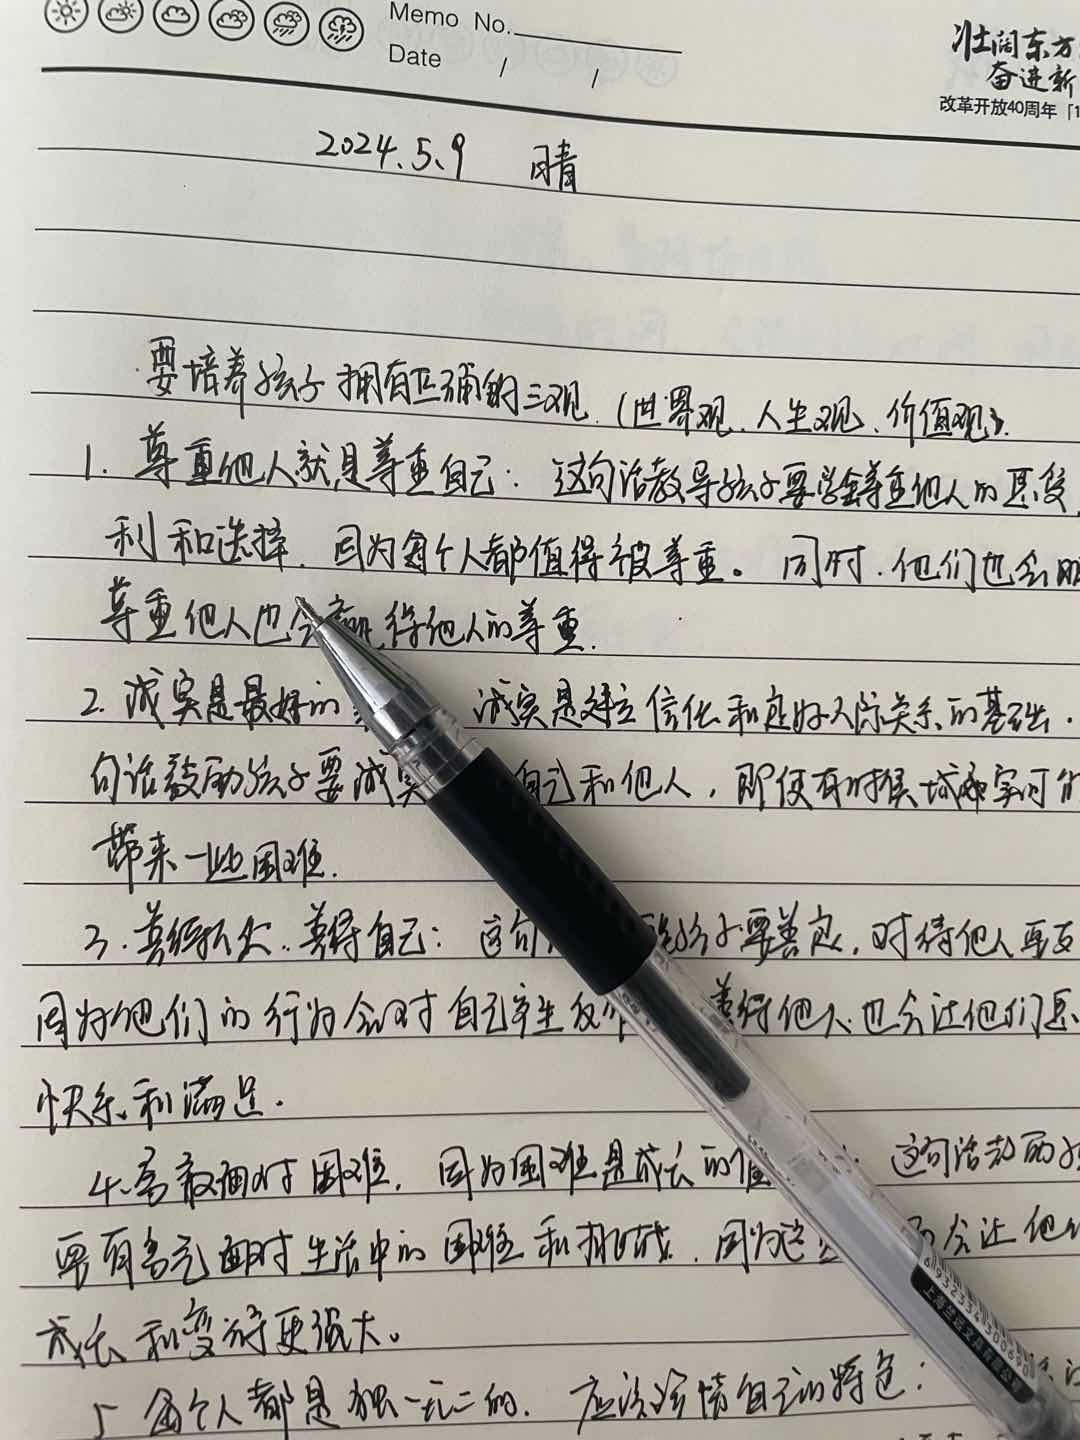 Memo No.
Date / /
壮阔东方
奋进新
改革开放40周年「1
2024.5.9 晴
要培养孩子拥有正确的三观.(世界观、人生观、价值观).
1. 尊重他人就是尊重自己: 这句话教导孩子要学会尊重他人的
利和选择, 因为每个人都值得被尊重。同时.他们也会明
尊重他人也会赢得他人的尊重.
2. 诚实是最好的 诚实是建立信任和良好人际关系的基础.
句话鼓励孩子要诚实 自己和他人, 即使有时候诚实可能
带来一些困难.
3. 善待他人.善待自己: 这句 孩子要善良,对待他人要友
因为他们的行为会对自己产生 善待他人.也会让他们
快乐和满足.
4.勇敢面对困难, 因为困难是成长的 这句话劝
要有勇气面对生活中的困难和挑战, 因为这 会让他们
成长和变得更强大。
5 每个人都是独一无二的. 应该珍惜自己的特色:
6 932334 300690